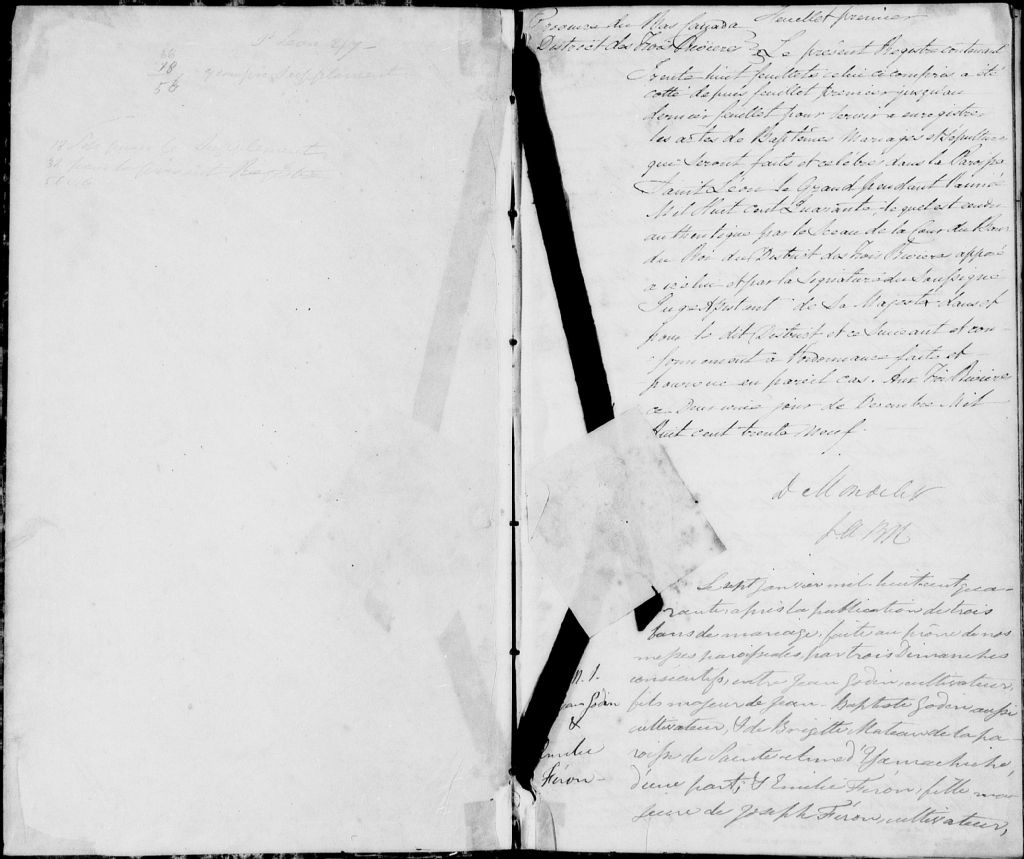 St Leon
36
18
56
Province du Bas Canada
Feuillet premier
District des Trois Rivieres
Le présent Registre contenant
Trente huit feuillets celui ci compris a été
cotté depuis feuillet premier jusqu'au
dernier feuillet pour servir a enregistrer
les actes de Baptêmes Mariages et Sepulture
que seront faits et celebrés dans la Paroisse
Saint Léon le Grand pendant l'année
Mil Huit cent Quarante, lequel est rendu
authentique par le Sceau de la Cour du Banc
du Roi du District des Trois Rivieres apposé
a icelui et par la Signature du Soussigné
Juge Assistant de Sa Majesté dans et
pour le dit District et ce suivant et con-
formement à l'ordonnance faite et
pourvue en pareil cas. Aux Trois Rivieres
ce jour de Decembre Mil
Huit cent trente Neuf.
D Mondelet
J A B R
Le sept janvier mil-huit-cent-qua-
rante, après la publication de trois
bans de mariage, faite au prône de nos
messes paroissiales, par trois Dimanches
consécutifs, entre Jean Godin, cultivateur,
fils majeur de Jean-Baptiste Godin aussi
cultivateur, & de Brigitte Mateau de la pa-
roisse de Sainte Anne d'Yamachiche,
d'une part; & Emilie Féron, fille ma-
jeure de Joseph Féron, cultivateur,
M. 1.
Jean Godin
&
Emilie
Féron-